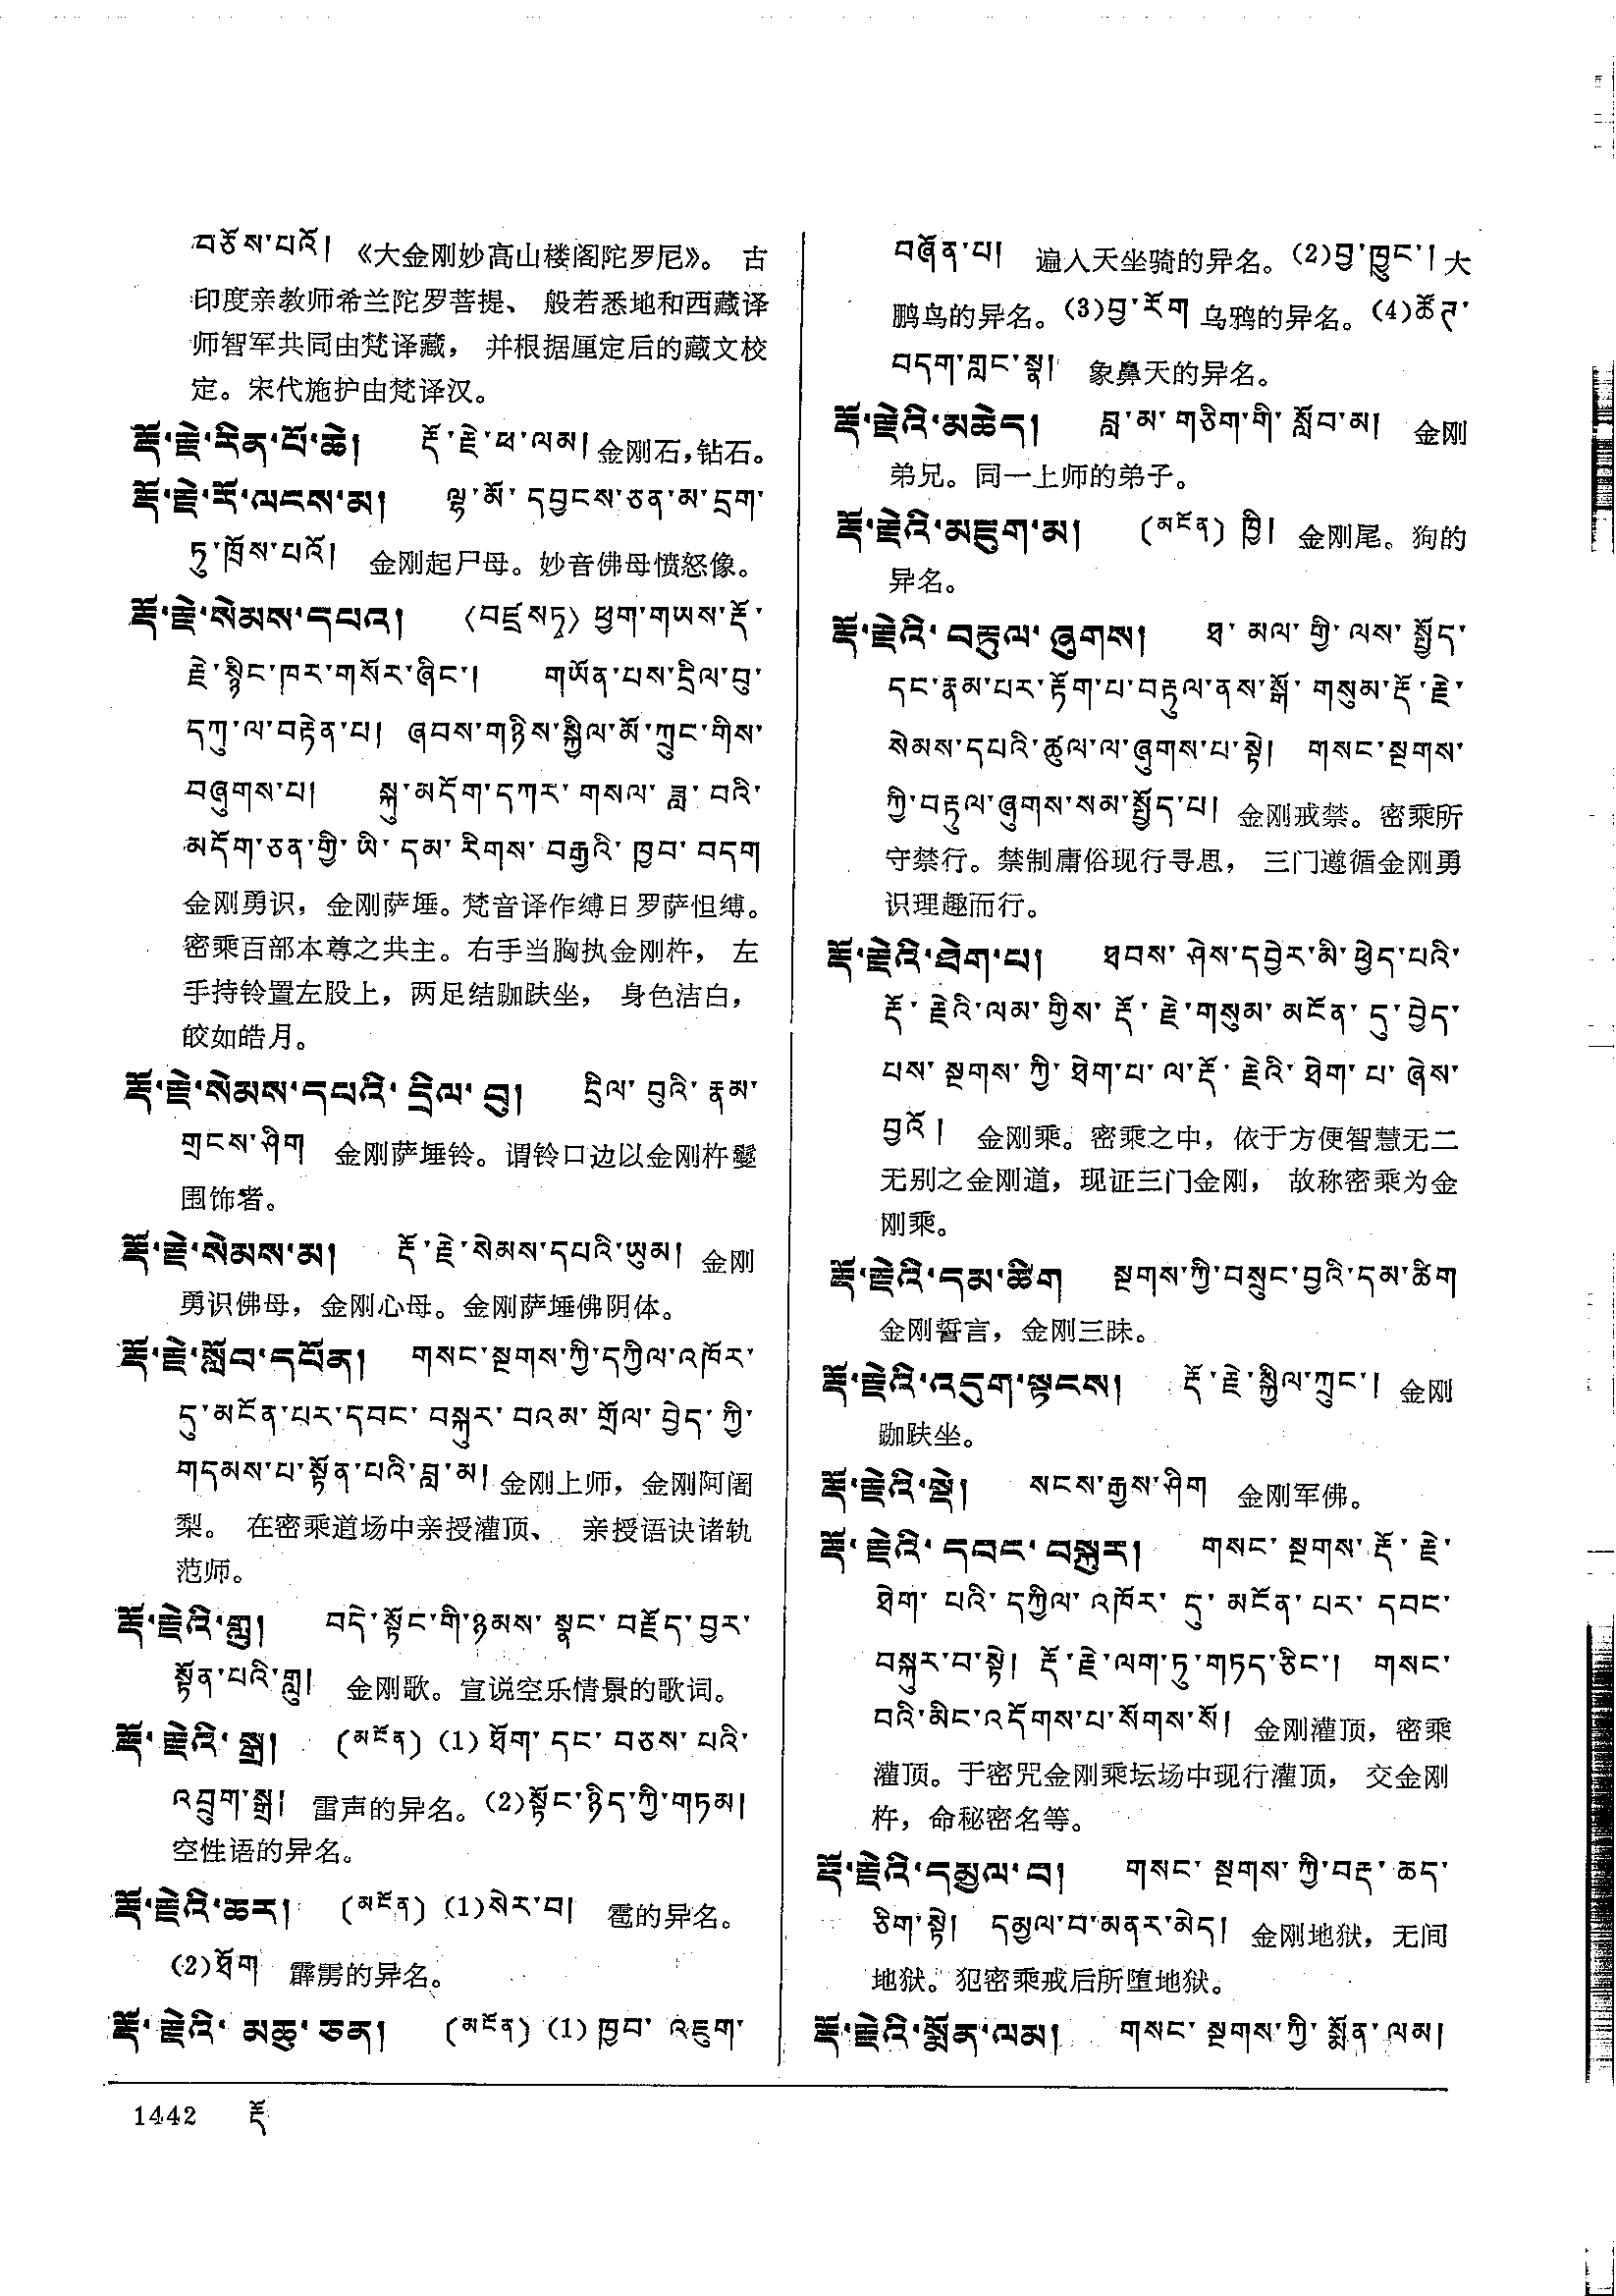 བཅོས་པའོ། 《大金刚妙高山楼阁陀罗尼》。 古
印度亲教师希兰陀罗菩提、 般若悉地和西藏译
师智军共同由梵译藏， 并根据厘定后的藏文校
定。宋代施护由梵译汉。
རྡོ་རྗེ་རིན་པོ་ཆེ། རྡོ་རྗེ་ཕ་ལམ། 金刚石，钻石。
རྡོ་རྗེ་རོ་ལངས་མ། ལྷ་མོ་དབྱངས་ཅན་མ་དྲག་
ཏུ་ཁྲོས་པའོ། 金刚起尸母。妙音佛母愤怒像。
རྡོ་རྗེ་སེམས་དཔའ། 〈བཛྲསཏྭ〉 ཕྱག་གཡས་རྡོ་
རྗེ་སྙིང་ཁར་གསོར་ཞིང་། གཡོན་པས་དྲིལ་བུ་
དཀུ་ལ་བརྟེན་པ། ཞབས་གཉིས་སྐྱིལ་མོ་ཀྲུང་གིས་
བཞུགས་པ། སྐུ་མདོག་དཀར་གསལ་ཟླ་བའི་
མདོག་ཅན་གྱི་ཡི་དམ་རིགས་བརྒྱའི་ཁྱབ་བདག
金刚勇识，金刚萨埵。梵音译作缚日罗萨怛缚。
密乘百部本尊之共主。右手当胸执金刚杵， 左
手持铃置左股上，两足结跏趺坐， 身色洁白，
皎如皓月。
རྡོ་རྗེ་སེམས་དཔའི་དྲིལ་བུ། དྲིལ་བུའི་རྣམ་
གྲངས་ཤིག 金刚萨埵铃。谓铃口边以金刚杵鬘
围饰者。
རྡོ་རྗེ་སེམས་མ། རྡོ་རྗེ་སེམས་དཔའི་ཡུམ། 金刚
勇识佛母，金刚心母。金刚萨埵佛阴体。
རྡོ་རྗེ་སློབ་དཔོན། གསང་སྔགས་ཀྱི་དཀྱིལ་འཁོར་
དུ་མངོན་པར་དབང་བསྐུར་བའམ་གྲོལ་བྱེད་ཀྱི་
གདམས་པ་སྟོན་པའི་བླ་མ། 金刚上师，金刚阿阇
梨。 在密乘道场中亲授灌顶、 亲授语诀诸轨
范师。
རྡོ་རྗེའི་གླུ། བདེ་སྟོང་གི་ཉམས་སྣང་བརྗོད་བྱར་
སྟོན་པའི་གླུ། 金刚歌。宣说空乐情景的歌词。
རྡོ་རྗེའི་སྒྲ། (མངོན) (1) ཐོག་དང་བཅས་པའི་
འབྲུག་སྒྲ། 雷声的异名。(2)སྟོང་ཉིད་ཀྱི་གཏམ།
空性语的异名。
རྡོ་རྗེའི་ཆར། (མངོན) (1)སེར་བ། 雹的异名。
(2)ཐོག 霹雳的异名。
རྡོ་རྗེའི་མཆུ་ཅན། (མངོན) (1) ཁྱབ་འཇུག་
བཞོན་པ། 遍入天坐骑的异名。(2)བྱ་ཁྱུང་། 大
鹏鸟的异名。(3)བྱ་རོག 乌鸦的异名。(4)ཚོཊ་
བདག་གླང་སྣ། 象鼻天的异名。
རྡོ་རྗེའི་མཆེད། བླ་མ་གཅིག་གི་སློབ་མ། 金刚
弟兄。同一上师的弟子。
རྡོ་རྗེའི་མཇུག་མ། (མངོན) ཁྱི། 金刚尾。狗的
异名。
རྡོ་རྗེའི་བརྟུལ་ཞུགས། ཐ་མལ་གྱི་ལས་སྤྱོད་
དང་རྣམ་པར་རྟོག་པ་བརྟུལ་ནས་སྒོ་གསུམ་རྡོ་རྗེ་
སེམས་དཔའི་ཚུལ་ལ་ཞུགས་པ་སྟེ། གསང་སྔགས་
ཀྱི་བརྟུལ་ཞུགས་སམ་སྤྱོད་པ། 金刚戒禁。密乘所
守禁行。禁制庸俗现行寻思， 三门遵循金刚勇
识理趣而行。
རྡོ་རྗེའི་ཐེག་པ། ཐབས་ཤེས་དབྱེར་མི་ཕྱེད་པའི་
རྡོ་རྗེའི་ལམ་གྱིས་རྡོ་རྗེ་གསུམ་མངོན་དུ་བྱེད་
པས་སྔགས་ཀྱི་ཐེག་པ་ལ་རྡོ་རྗེའི་ཐེག་པ་ཞེས་
བྱའོ། 金刚乘。密乘之中，依于方便智慧无二
无别之金刚道，现证三门金刚， 故称密乘为金
刚乘。
རྡོ་རྗེའི་དམ་ཚིག སྔགས་ཀྱི་བསྲུང་བྱའི་དམ་ཚིག
金刚誓言，金刚三昧。
རྡོ་རྗེའི་འདུག་སྟངས། རྡོ་རྗེ་སྐྱིལ་ཀྲུང་། 金刚
跏趺坐。
རྡོ་རྗེའི་སྡེ། སངས་རྒྱས་ཤིག 金刚军佛。
རྡོ་རྗེའི་དབང་བསྐུར། གསང་སྔགས་རྡོ་རྗེ་
ཐེག་པའི་དཀྱིལ་འཁོར་དུ་མངོན་པར་དབང་
བསྐུར་བ་སྟེ། རྡོ་རྗེ་ལག་ཏུ་གཏད་ཅིང་། གསང་
བའི་མིང་འདོགས་པ་སོགས་སོ། 金刚灌顶，密乘
灌顶。于密咒金刚乘坛场中现行灌顶， 交金刚
杵，命秘密名等。
རྡོ་རྗེའི་དམྱལ་བ། གསང་སྔགས་ཀྱི་བརྡ་ཆད་
ཅིག་སྟེ། དམྱལ་བ་མནར་མེད། 金刚地狱，无间
地狱。犯密乘戒后所堕地狱。
རྡོ་རྗེའི་སྨོན་ལམ། གསང་སྔགས་ཀྱི་སྨོན་ལམ།
1442 རྡོ